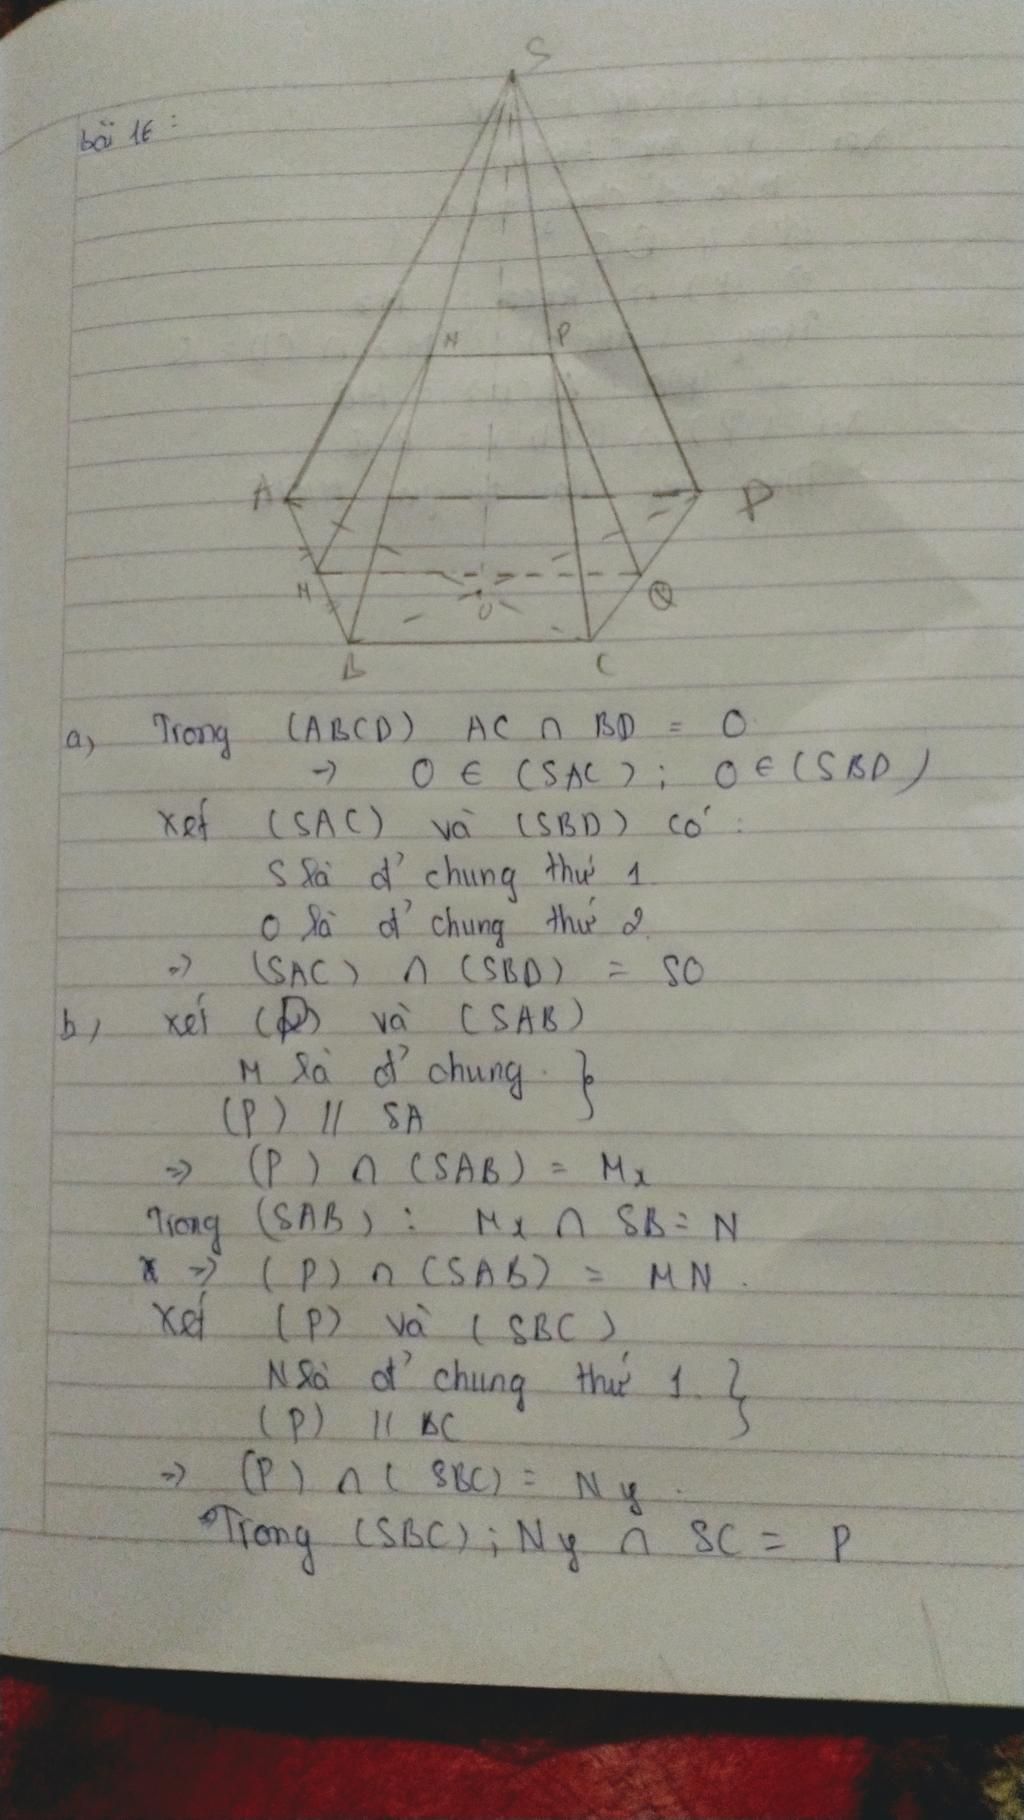 bài 16:
S
N P
A D
M Q
O
B C
a, Trong (ABCD) AC ∩ BD = O
→ O ∈ (SAC); O ∈ (SBD)
xét (SAC) và (SBD) có:
S là đ' chung thứ 1
O là đ' chung thứ 2
=> (SAC) ∩ (SBD) = SO
b, xét (P) và (SAB)
M là đ' chung. }
(P) // SA
=> (P) ∩ (SAB) = Mx
Trong (SAB): Mx ∩ SB = N
=> (P) ∩ (SAB) = MN.
Xét (P) và (SBC)
N là đ' chung thứ 1. }
(P) // BC
=> (P) ∩ (SBC) = Ny.
Trong (SBC); Ny ∩ SC = P